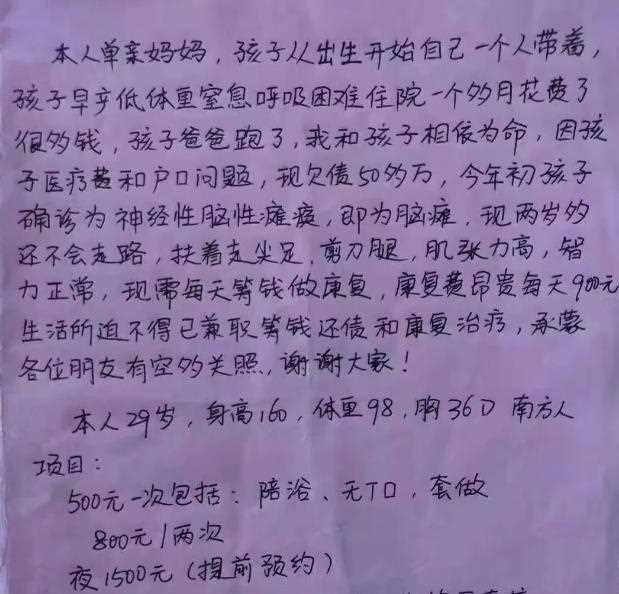 本人单亲妈妈，孩子从出生开始自己一个人带着，
孩子早产低体重窒息呼吸困难住院一个多月花费了
很多钱，孩子爸爸跑了，我和孩子相依为命，因孩
子医疗费和户口问题，现欠债50多万，今年初孩子
确诊为神经性脑性瘫痪，即为脑瘫，现两岁多
还不会走路，扶着走尖足，剪刀腿，肌张力高，智
力正常，现需每天筹钱做康复，康复费昂贵每天900元
生活所迫不得已兼职筹钱还债和康复治疗，承蒙
各位朋友有空多关照，谢谢大家！
本人29岁，身高160，体重98，胸36D 南方人
项目：
500元一次包括：陪浴、无TO，套做
800元/两次
夜1500元（提前预约）